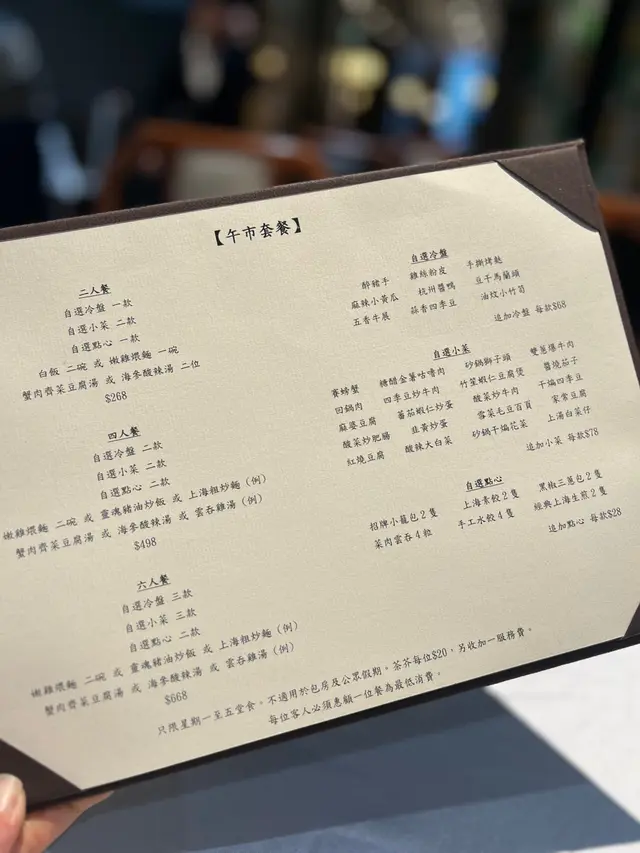 【午市套餐】
二人餐
自選冷盤 一款
自選小菜 二款
自選點心 一款
白飯 二碗 或 嫩雞煨麵 一碗
蟹肉薺菜豆腐湯 或 海參酸辣湯 二位
$268
四人餐
自選冷盤 二款
自選小菜 二款
自選點心 二款
嫩雞煨麵 二碗 或 靈魂豬油炒飯 或 上海粗炒麵 (例)
蟹肉薺菜豆腐湯 或 海參酸辣湯 或 雲吞雞湯 (例)
$498
六人餐
自選冷盤 三款
自選小菜 三款
自選點心 二款
嫩雞煨麵 二碗 或 靈魂豬油炒飯 或 上海粗炒麵 (例)
蟹肉薺菜豆腐湯 或 海參酸辣湯 或 雲吞雞湯 (例)
$668
自選冷盤
醉豬手 雞絲粉皮 手撕烤麩
麻辣小黃瓜 杭州醬鴨 豆干馬蘭頭
五香牛展 蒜香四季豆 油炆小竹筍
追加冷盤 每款$68
自選小菜
賽螃蟹 糖醋金薯咕嚕肉 砂鍋獅子頭 雙蔥爆牛肉
回鍋肉 四季豆炒牛肉 竹笙蝦仁豆腐煲 醬燒茄子
麻婆豆腐 蕃茄蝦仁炒蛋 酸菜炒牛肉 干煸四季豆
酸菜炒肥腸 韭黃炒蛋 雪菜毛豆百頁 家常豆腐
紅燒豆腐 酸辣大白菜 砂鍋干煸花菜 上湯白菜仔
追加小菜 每款$78
自選點心
招牌小籠包2隻 上海素餃2隻 黑椒三蔥包2隻
菜肉雲吞4粒 手工水餃4隻 經典上海生煎2隻
追加點心 每款$28
只限星期一至五堂食。不適用於包房及公眾假期。茶芥每位$20，另收加一服務費。
每位客人必須惠顧一位餐為最低消費。